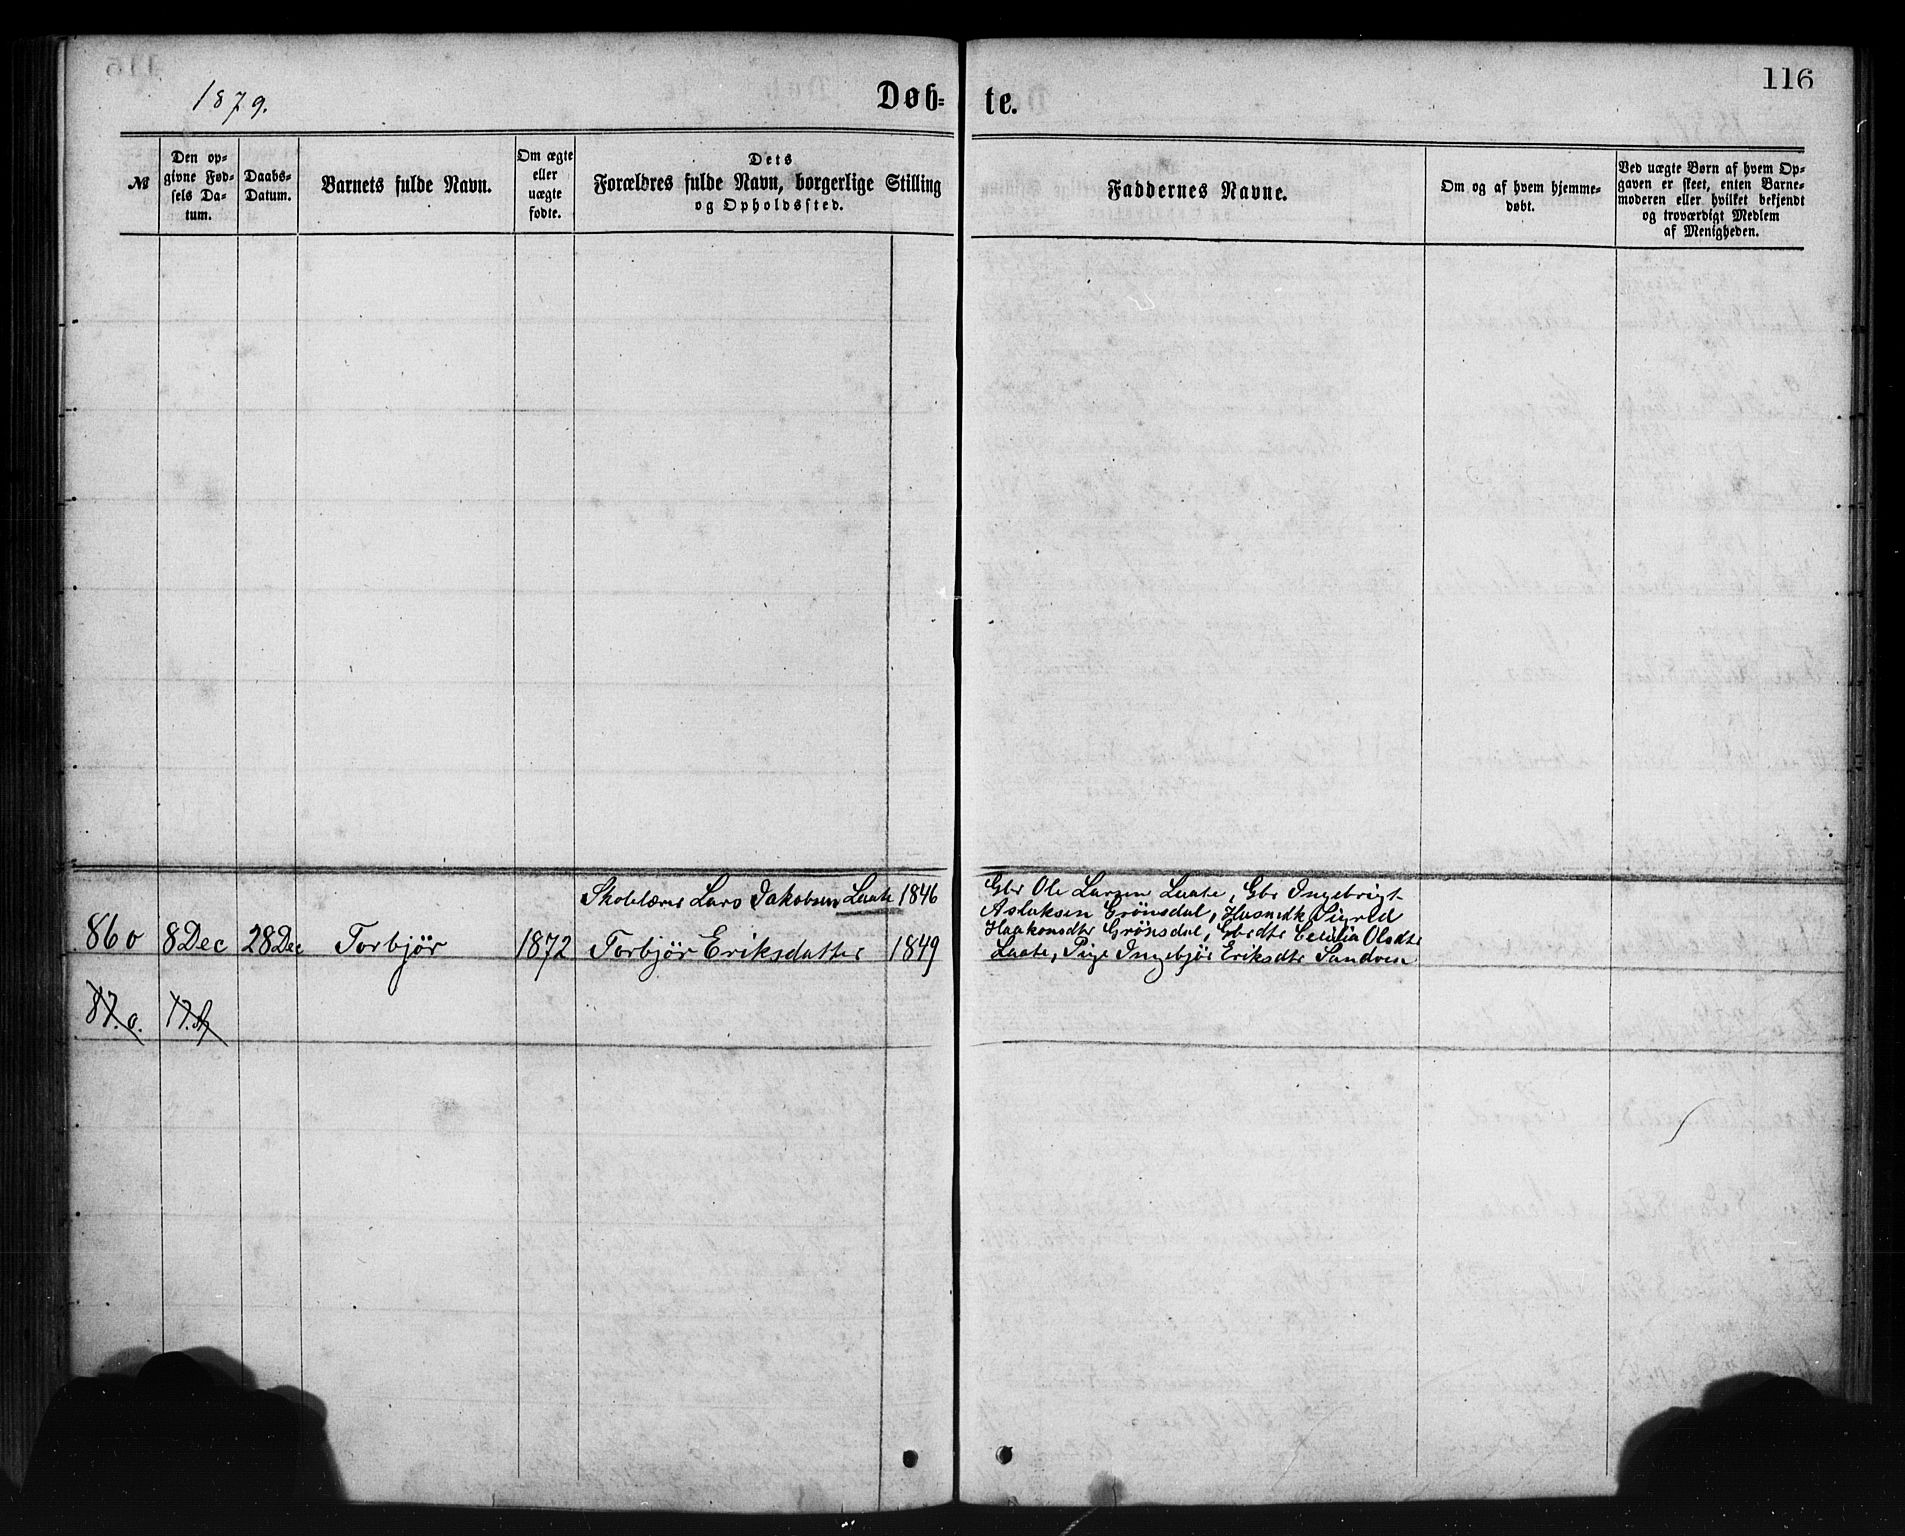 116
1879.
Døb=
te.
№
Den op=
givne Fød=
sels Da=
tum.
Daabs=
Datum.
Barnets fulde Navn.
Om ægte
eller
uægte
fødte.
Dets
Forældres fulde Navn, borgerlige Stilling
og Opholdssted.
Faddernes Navne.
Om og af hvem hjemme=
døbt.
Ved uægte Børn af hvem Op=
gaven er skeet, enten Barne=
moderen eller hvilket bekjendt
og troværdigt Medlem
af Menigheden.
Skolelærer Lars Jakobsen Laate 1846
86 o 8 Dec 28 Dec Torbjør 1872 Torbjør Eriksdatter 1849
Gbr Ole Larsen Laate, Gbr Ingebrigt
Aslaksen Grönsdal, Husmdk Sigrid
Haakonsdtr Grönsdal, Gbrdtr Cecilia Olsdtr
Laate, Pige Ingebjør Eriksdtr Sandven
87. o. 17.